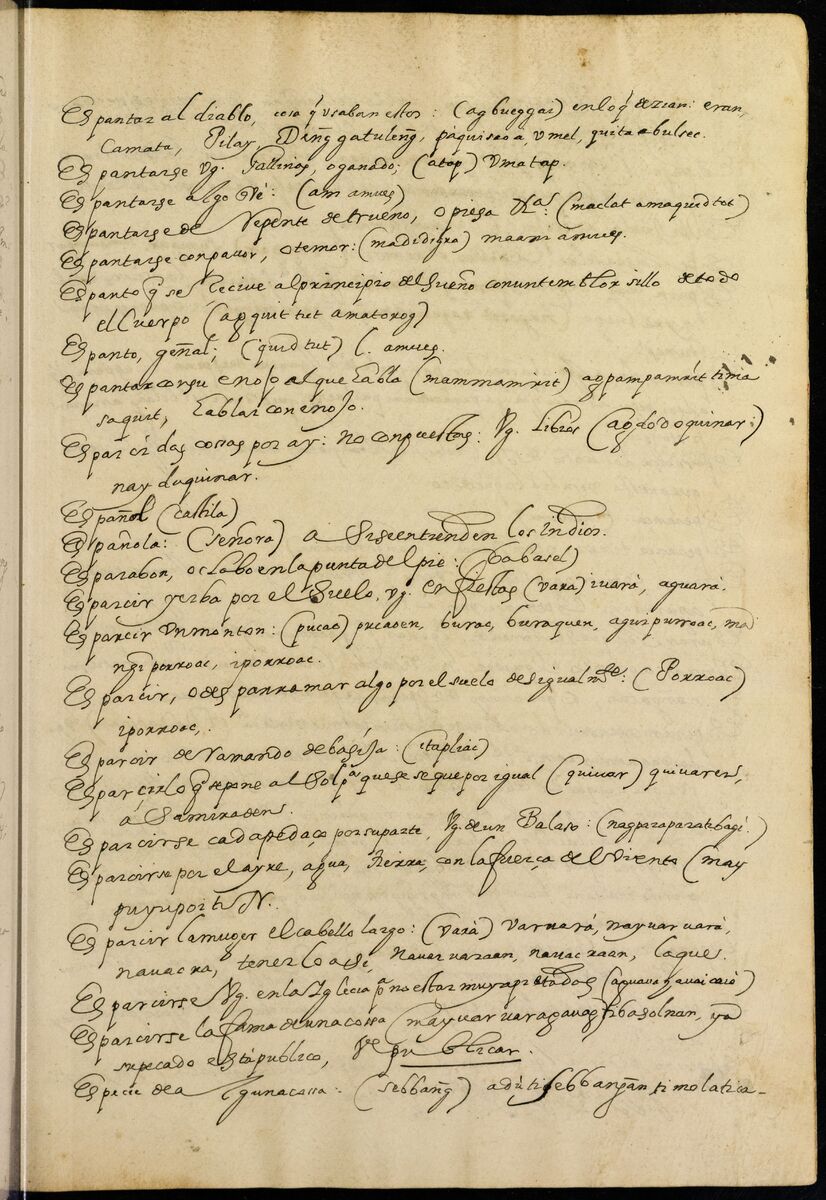 Espantar al diablo, cosa q̃ vsaban estos: (agbueggai) enloq̃ dezian: eran,
Camata, Pilay, Dẽng gatulẽng, paquisao a, vmel, quita abulsec.
Espantarse Vg. Gallinas, o ganado; (atap) Vmatap.
Espantarse algo Vè: (am amues)
Espantarse de Repente de trueno, o piesa &ᵃˢ: (maclat amaquid tot)
Espantarse con pauor, o temor: (madidigra) maami amues.
Espanto q̃ se recive al principio del sueño con un temblorsillo de todo
el Cuerpo (agquit tut amatorog)
Espanto, geñal; (quid tut) l. amues.
Espantar con su enojo al que habla (mammamirit) agpampamirit tima
saquit, hablar con enojo.
Esparcidas cosas por ay: no conpuestas: Vg. Libros (agdodoquinar:)
nayduquinar.
Español (castila)
Española: (señora) asise entienden los indios.
Esparabon, o clabo en la punta del pie: (babasel)
Esparcir yerba por el suelo, vg. en fiestas (vara) iuara, aguara.
Esparcir Vn monton: (pucao) pucaoen, burac, buraquen, aguipurroac, ma
ngiporroac, iporroac.
Esparcir, o desparramar algo por el suelo desigualmᵗᵉ: (Porroac)
iporroac,.
Esparcir derramando de bagija: (itapliac)
Esparcirlo q̃ se pone al Sol pᵃ que se seque por igual (quiuar) quiuaren,
á Samiraden.
Esparcirse cada pedaço por su parte, Vg. de un Balaso: (nagparaparatebagi.)
Esparcirse por el ayre, agua, tierra, con la fuerça del Viento (may
puyupoit N.
Esparcir la muger el cabello largo: (varà) varuará, nayuaruará,
nauacra, tenerlo asi, nauaruaraan, nauacraan, la que.
Esparcirse Vg. en la Iglecia pᵃ no estar muy apretados
Esparcirse la fama de una cossa (mayuaruara gauag tibasolnan, ya
su pecado está público, Vᵉ publicar.
Especie de algunacossa: (sebbang) adú ti sebbangan ti molatica-